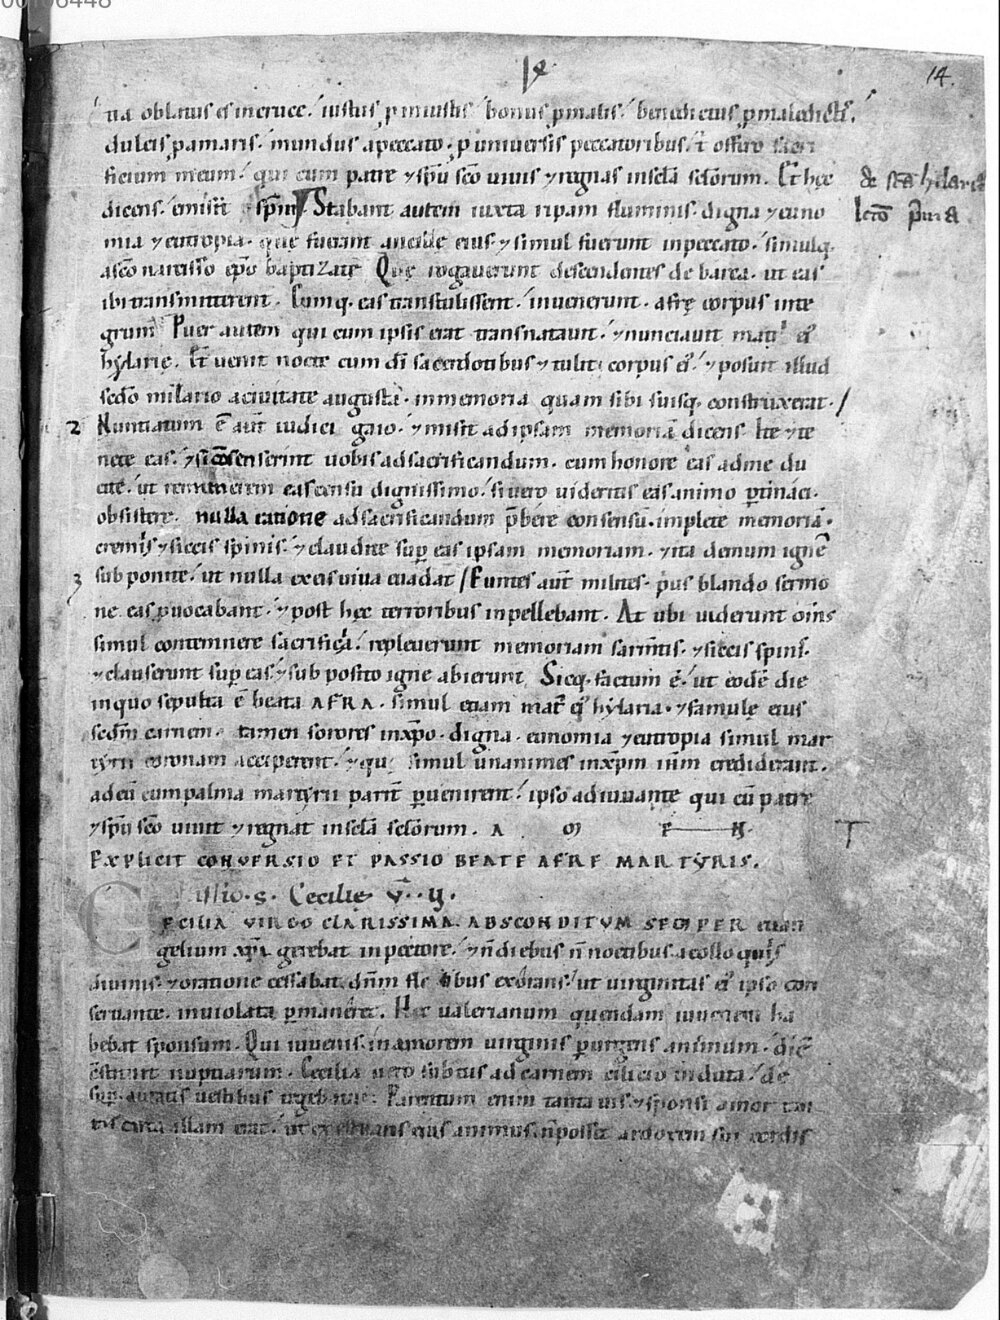 14.
tia oblatus es in cruce. iustus ꝓ iniustis. bonus ꝓ malis. benedictus ꝓ maledictis.
dulcis ꝓ amaris. mundus a peccato. ꝓ universis peccatoribus. t̄ offero sacri
ficium meum. qui cum patre ⁊ sp̄u sc̄o uiuis ⁊ regnas in sc̄la sc̄lorum. Et hęc
de sc̄a hilaria
dicens. emisit sp̄m Stabant autem iuxta ripam fluminis. digna ⁊ euno
lectō p̄ma
mia ⁊ eutropia. quę fuerant ancillę eius ⁊ simul fuerunt in peccato. simulq.
a sc̄o narcisso ep̄o baptizatę Quę rogauerunt descendentes de barca. ut eas
ibi transmitterent. Cumq. eas transtulissent. inuenerunt. afrę corpus inte
grum Puer autem qui cum ipsis erat transnatauit. ⁊ nunciauit matri ei᷒
hylarię. Et uenit nocte cum dī sacerdotibus ⁊ tulit corpus ei᷒. ⁊ posuit illud
sc̄do miliario a ciuitate augusta. in memoria quam sibi suisq. construxerat. /
2 Nuntiatum ē aut̄ iudici gaio. ⁊ misit ad ipsam memoriā dicens. Ite ⁊ te
nete eas. ⁊ si consenserint uobis ad sacrificandum. cum honore eas ad me du
cite. ut remunerem eas censu dignissimo. si uero uideritis eas animo ꝑtinaci.
obsistere. nulla ratione ad sacrificandum p̄bere consensū. implete memoriā.
cremiis ⁊ siccis spinis. ⁊ claudite suꝑ eas ipsam memoriam. ⁊ ita demum ignē
3 subponite. ut nulla ex eis uiua euadat / Euntes aut̄ milites. p̄us blando sermo
ne eas ꝓuocabant. ⁊ post hęc terroribus inpellebant. At ubi uiderunt om̄s
simul contemnere sacrificia. repleuerunt memoriam sarm̄tis. ⁊ siccis spinis.
⁊ clauserunt suꝑ eas. ⁊ subposito igne abierunt. Sicq. factum ē. ut eodē die
in quo sepulta ē beata AFRA. simul etiam mat̄ ei᷒ hylaria. ⁊ famulę eius
sedm̄ carnem. tamen sorores in xp̄o. digna. eunomia ⁊ eutropia simul mar
tyrii coronam acciperent. ⁊ quę simul unanimes in xp̄m ih̄m crediderant.
ad eū cum palma martyrii parit̄ ꝑuenirent. ipso adiuuante qui cū patre
⁊ sp̄u sc̄o uiuit ⁊ regnat in sc̄la sc̄lorum. A M E N
EXPLICIT CONVERSIO ET PASSIO BEATE AFRE MARTYRIS.
Passio. S. Cecilię V̄.
CECILIA VIRGO CLARISSIMA. ABSCONDITVM SEMPER euan
gelium xp̄i. gerebat in pectore. ⁊ n̄ diebus n̄ noctibus. a colloquiis
diuinis. ⁊ oratione cessabat. dn̄m fletibus exorans. ut uirginitas ei᷒ ipso con
seruante. inuiolata ꝑmaneret. Hęc ualerianum quendam iuuenem ha
bebat sponsum. Qui iuuenis. in amorem uirginis ꝑurgens animum. diē
constituit nuptiarum. Cecilia uero subtus ad carnem cilicio induta. de
suꝑ. auratis uestibus tegebatur. Parentum enim tanta uis. ⁊ sponsi amor
circa illam erat. ut exestuans eius animus. n̄ posset ardorem sui cordis